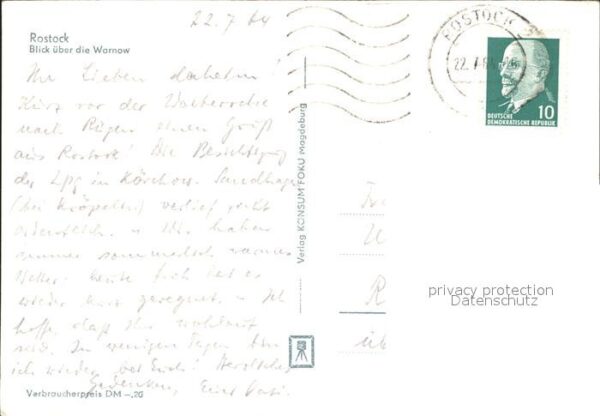 22.7.64
Rostock
Blick über die Warnow
Ihr Lieben daheim!
Kurz vor der Weiterreise
nach Rügen einen Gruß
aus Rostock! Die Besichtigung
der LPG in Körchow-Sandhagen
(bei Kröpelin) verlief recht
ordentlich. Wir haben
immer sommerlich warmes
Wetter, heute früh hat es
wieder kurz geregnet. Ich
hoffe, daß Ihr wohlauf
seid. In wenigen Tagen bin
ich wieder bei Euch! Herzliches
Gedenken, Euer Vati.
Verbraucherpreis DM -,20
Verlag KONSUM FOKU Magdeburg
ROSTOCK
22.7.64
10
DEUTSCHE
DEMOKRATISCHE REPUBLIK
privacy protection
Datenschutz